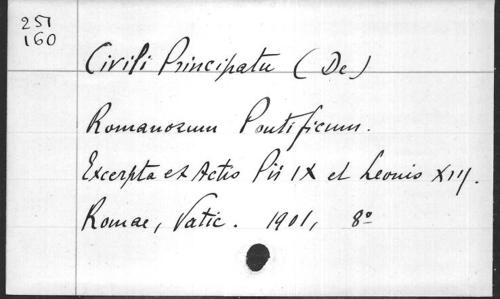 251
160
Civili Principatu (De)
Romanorum Pontificum.
Excerpta ex Actis Pii IX et Leonis XIII.
Romae, Vatic. 1901, 8º